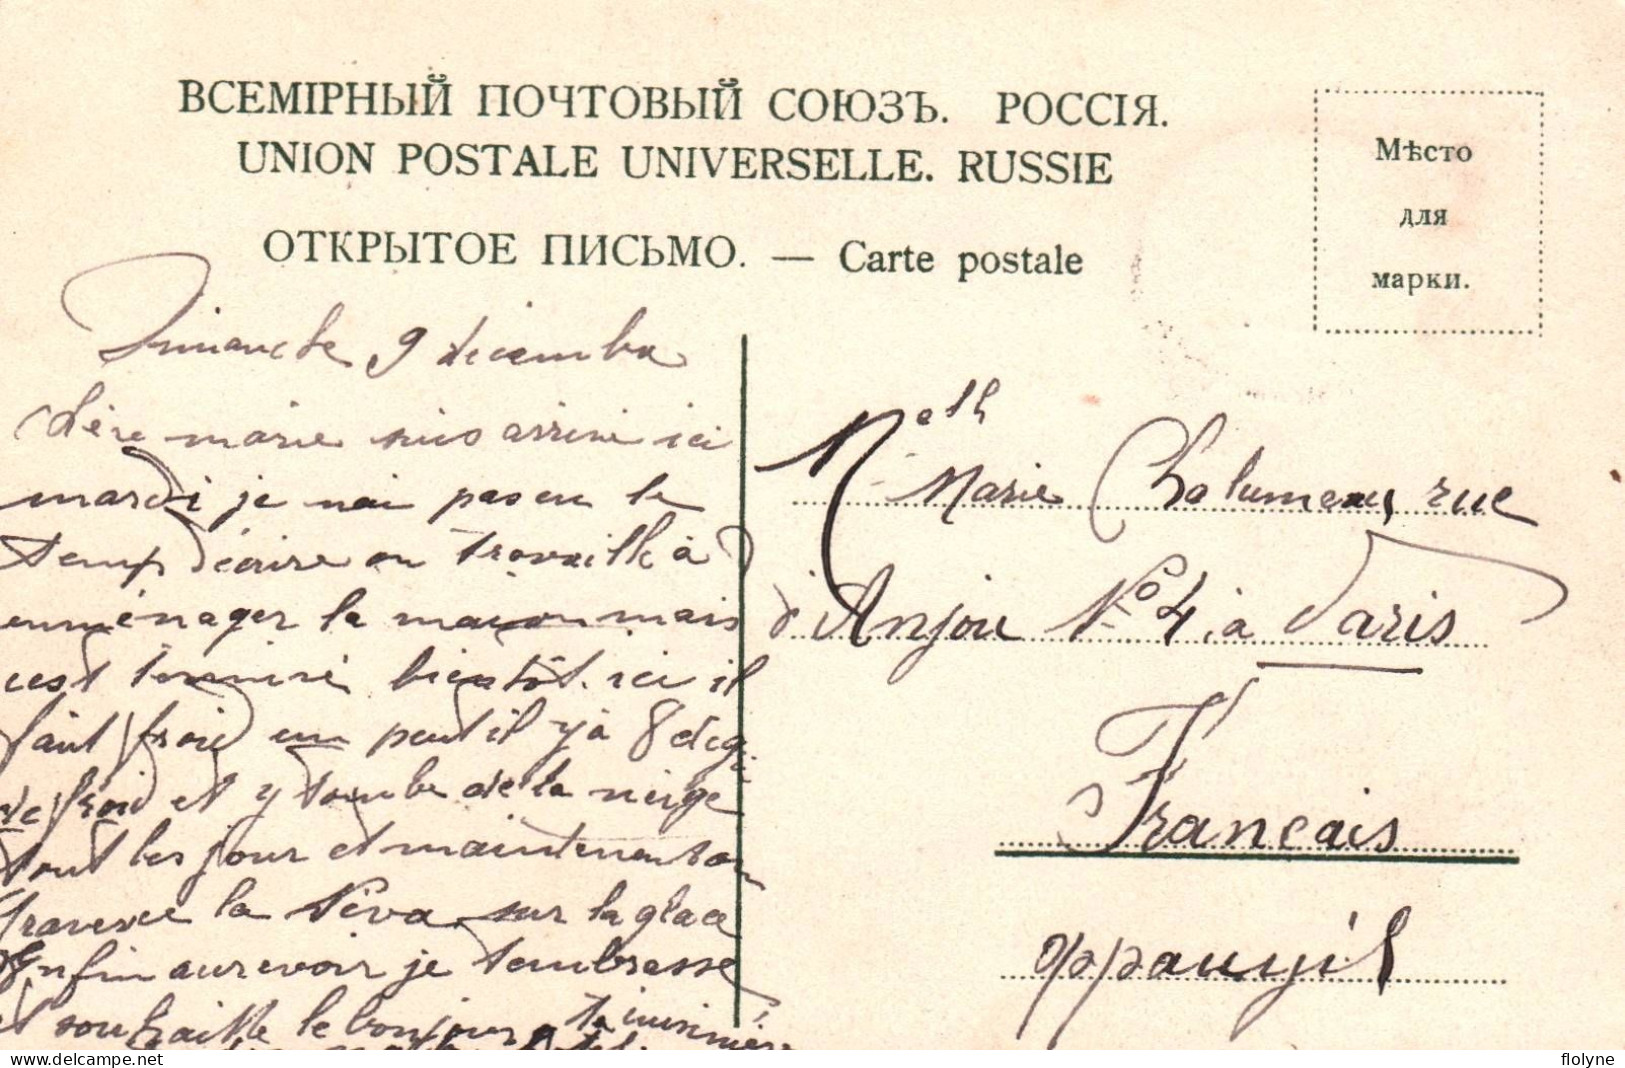 ВСЕМІРНЫЙ ПОЧТОВЫЙ СОЮЗЪ. РОССІЯ.
UNION POSTALE UNIVERSELLE. RUSSIE
ОТКРЫТОЕ ПИСЬМО. — Carte postale
Мѣсто
для
марки.
Dimanche 9 décembre
Chère marie suis arrivé ici
mardi je nai pas eu le
temps décrire on travaille à
emménager la maison mais
cest terminé bientôt. ici il
fait froid un petit il y à 8 deg
de froid et y tombe de la neige
tout les jour et maintenant on
traverse la Néva sur la glace
Enfin aurevoir je tembrasse
et souhaitte le bonjour a ta
Melle Marie Chalumeau, rue
d'Anjou No 4. à Paris
Francais
Франція
delcampe.net
flolyne